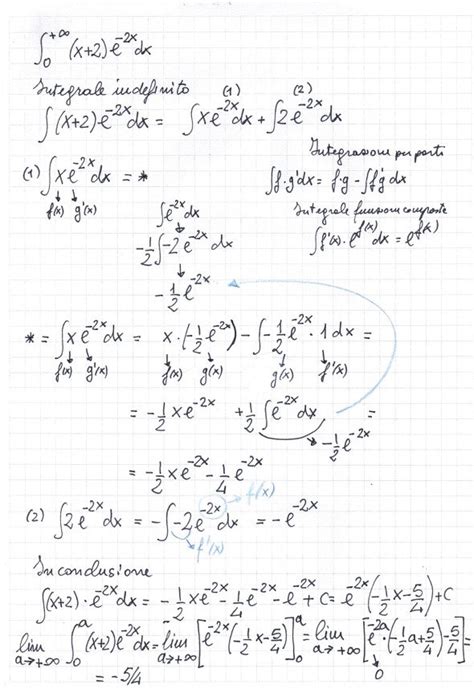 ∫₀^{+∞} (x+2) e^{-2x} dx
Integrale indefinito (1) (2)
∫(x+2)·e^{-2x}dx = ∫xe^{-2x}dx + ∫2e^{-2x}dx
Integrazione per parti
(1) ∫xe^{-2x}dx = * ∫f·g'dx = f·g - ∫f'g dx
f(x) g'(x)
∫e^{-2x}dx Integrale funzioni composte
-1/2∫-2e^{-2x}dx ∫f'(x)·e^{f(x)}dx = e^{f(x)}
-1/2 e^{-2x}
* = ∫xe^{-2x}dx = x·(-1/2 e^{-2x}) - ∫-1/2 e^{-2x}·1dx =
f(x) g'(x) f(x) g(x) g(x) f'(x)
= -1/2 xe^{-2x} +1/2 ∫e^{-2x}dx =
-1/2 e^{-2x}
= -1/2 xe^{-2x} - 1/4 e^{-2x}
f(x)
(2) ∫2e^{-2x}dx = -∫-2e^{-2x}dx = -e^{-2x}
f'(x)
In conclusione
∫(x+2)·e^{-2x}dx = -1/2 xe^{-2x} - 1/4 e^{-2x} - e^{-2x} + C = e^{-2x}(-1/2 x - 5/4) + C
lim a→+∞ ∫₀^a (x+2)e^{-2x}dx = lim a→+∞ [e^{-2x}(-1/2 x - 5/4)]₀^a = lim a→+∞ [e^{-2a}·(-1/2 a + 5/4) - 5/4] =
0
= -5/4